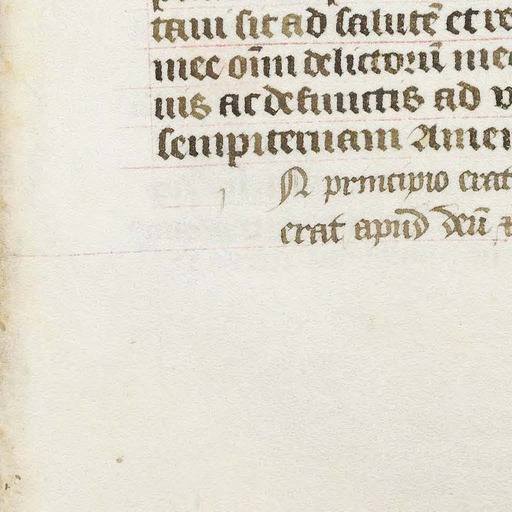 tam sit ad salutē et re
mee oīm delictorū me
uis ac defunctis ad v
sempiternam Amen
N principio erat
erat apud deū